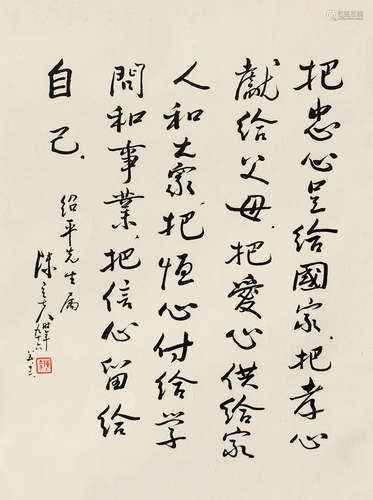 把忠心呈给國家.把孝心
獻给父母.把愛心供给家
人和大家.把恒心付给学
問和事業.把信心留给
自己.
绍平先生属
陈立夫
時年九十六